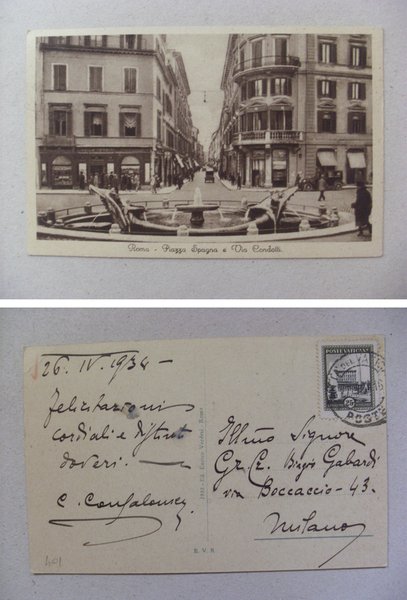 Roma - Piazza Spagna e Via Condotti.
26. IV. 1934 -
felicitazioni
cordiali e distinti
doveri. -
POSTE VATICANE
25
POSTE
Illmo Signore
Gr. Cr. Biagio Gabardi
via Boccaccio - 43.
Milano
Ed. Enrico Verdesi - Roma
E. V. R.
401